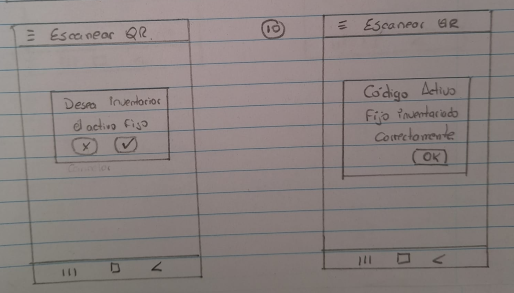 Escanear QR.
Desea Inventariar
el activo fijo
x ✓
10
Escanear QR
Código Activo
Fijo inventariado
Correctamente
OK